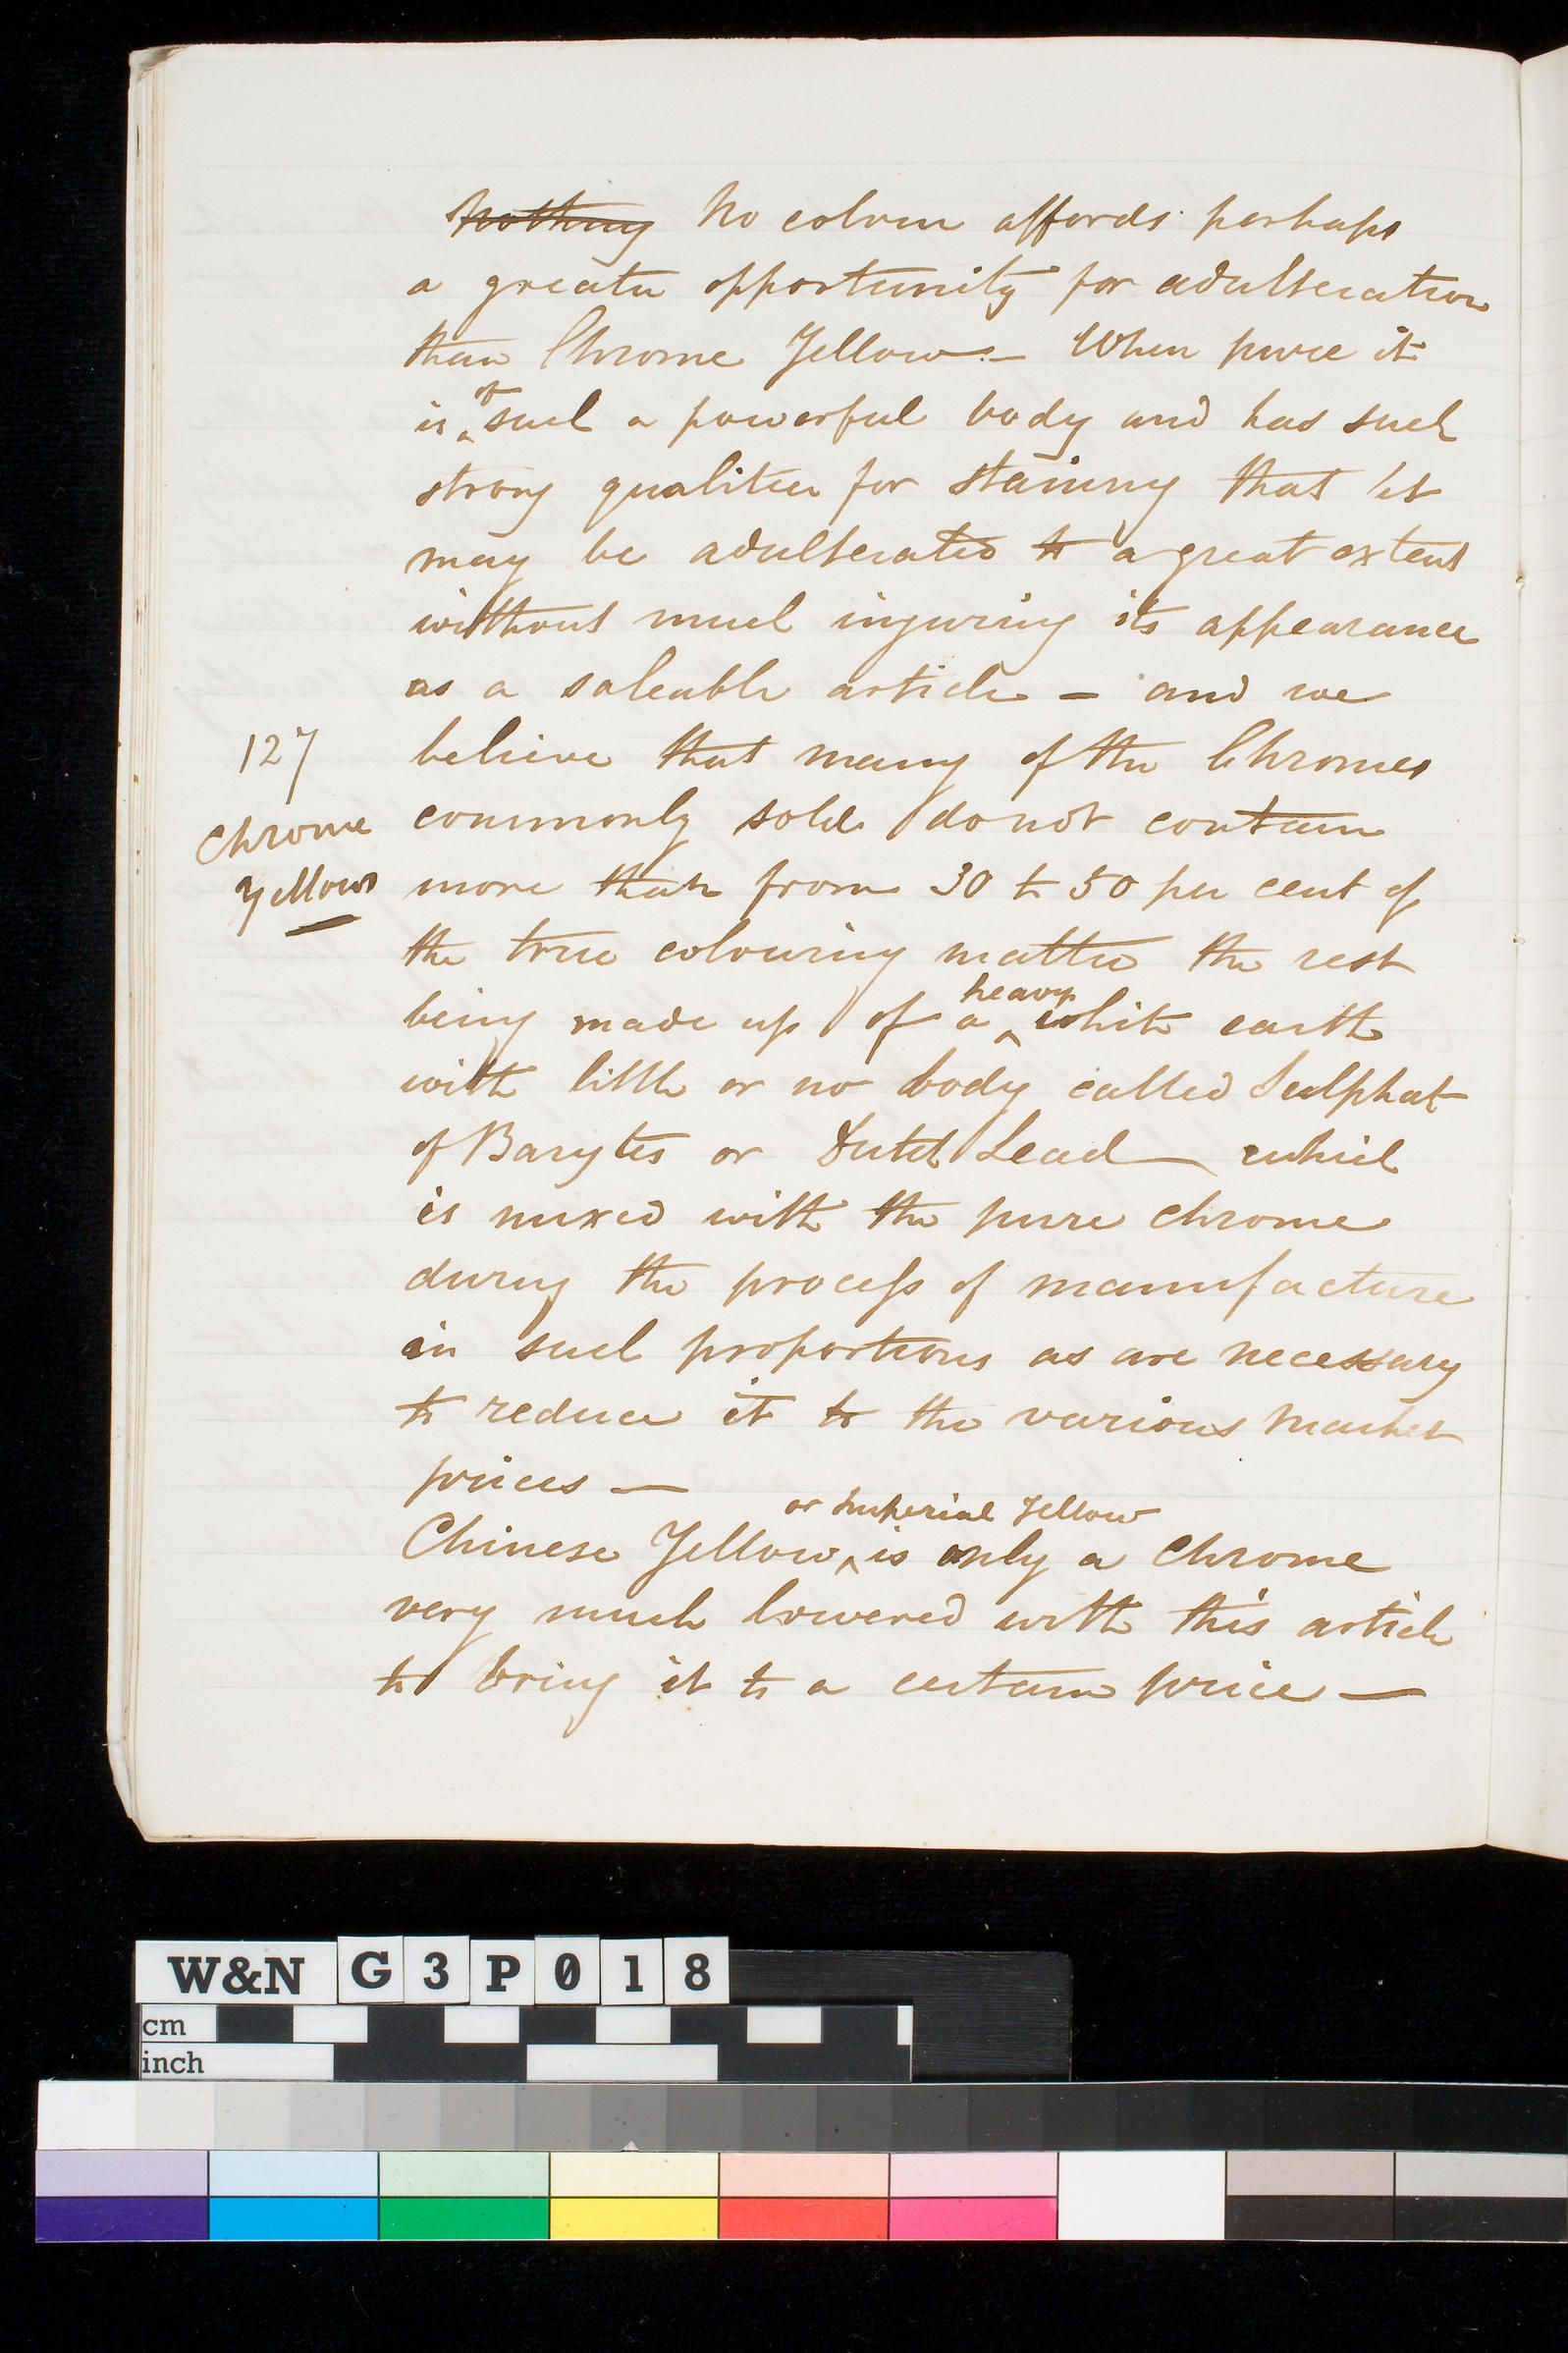 Nothing No colour affords perhaps
a greater opportunity for adulteration
than Chrome Yellow. — When pure it
of
is such a powerful body and has such
strong qualities for staining that it
may be adulterated to a great extent
without much injuring its appearance
as a saleable article — and we
127
believe that many of the Chromes
Chrome
commonly sold do not contain
Yellows
more than from 30 to 50 per cent of
the true colouring matter the rest
heavy
being made up of a white earth
with little or no body called Sulphat
of Barytes or Dutch Lead — which
is mixed with the pure chrome
during the process of manufacture
in such proportions as are necessary
to reduce it to the various market
prices —
or Imperial Yellow
Chinese Yellow is only a Chrome
very much lowered with this article
to bring it to a certain price —
W&N G3P018
cm
inch